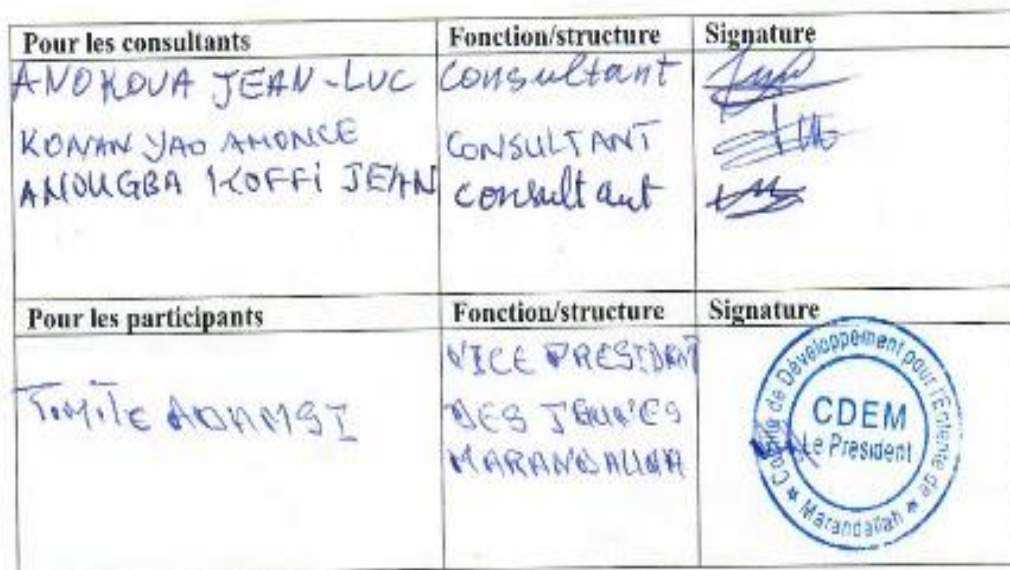 Pour les consultants Fonction/structure Signature
ANOKOUA JEAN-LUC Consultant
KONAN YAO AMONCE CONSULTANT
ANOUGBA KOFFI JEAN consultant
Pour les participants Fonction/structure Signature
VICE PRESIDENT
ADAMSI DES JEUNES
Comité de Développement pour l'Entente de
CDEM
Le Président
Marandallah